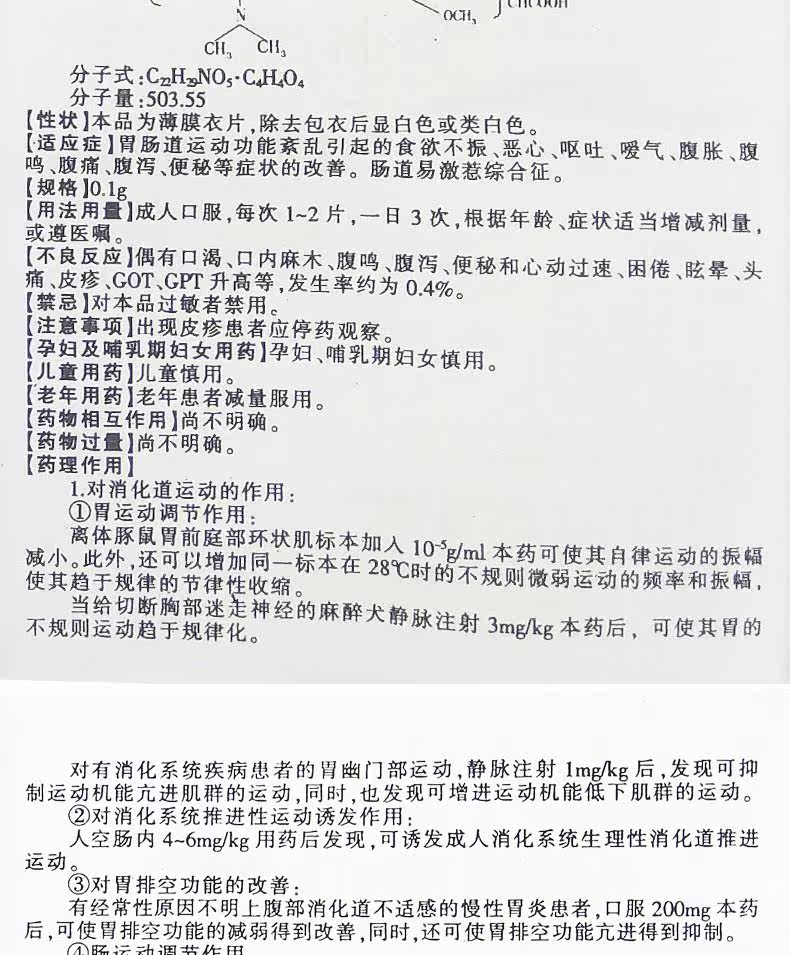 CHCOOH
OCH₃
N
CH₃ CH₃
分子式:C₂₂H₂₉NO₅·C₄H₄O₄
分子量:503.55
【性状】本品为薄膜衣片,除去包衣后显白色或类白色。
【适应症】胃肠道运动功能紊乱引起的食欲不振、恶心、呕吐、嗳气、腹胀、腹
鸣、腹痛、腹泻、便秘等症状的改善。肠道易激惹综合征。
【规格】0.1g
【用法用量】成人口服,每次 1~2 片,一日 3 次,根据年龄、症状适当增减剂量,
或遵医嘱。
【不良反应】偶有口渴、口内麻木、腹鸣、腹泻、便秘和心动过速、困倦、眩晕、头
痛、皮疹、GOT、GPT 升高等,发生率约为 0.4%。
【禁忌】对本品过敏者禁用。
【注意事项】出现皮疹患者应停药观察。
【孕妇及哺乳期妇女用药】孕妇、哺乳期妇女慎用。
【儿童用药】儿童慎用。
【老年用药】老年患者减量服用。
【药物相互作用】尚不明确。
【药物过量】尚不明确。
【药理作用】
1.对消化道运动的作用:
①胃运动调节作用:
离体豚鼠胃前庭部环状肌标本加入 10⁻⁵g/ml 本药可使其自律运动的振幅
减小。此外,还可以增加同一标本在 28℃时的不规则微弱运动的频率和振幅,
使其趋于规律的节律性收缩。
当给切断胸部迷走神经的麻醉犬静脉注射 3mg/kg 本药后，可使其胃的
不规则运动趋于规律化。
对有消化系统疾病患者的胃幽门部运动,静脉注射 1mg/kg 后,发现可抑
制运动机能亢进肌群的运动,同时,也发现可增进运动机能低下肌群的运动。
②对消化系统推进性运动诱发作用:
人空肠内 4~6mg/kg 用药后发现,可诱发成人消化系统生理性消化道推进
运动。
③对胃排空功能的改善:
有经常性原因不明上腹部消化道不适感的慢性胃炎患者,口服 200mg 本药
后,可使胃排空功能的减弱得到改善,同时,还可使胃排空功能亢进得到抑制。
④肠运动调节作用